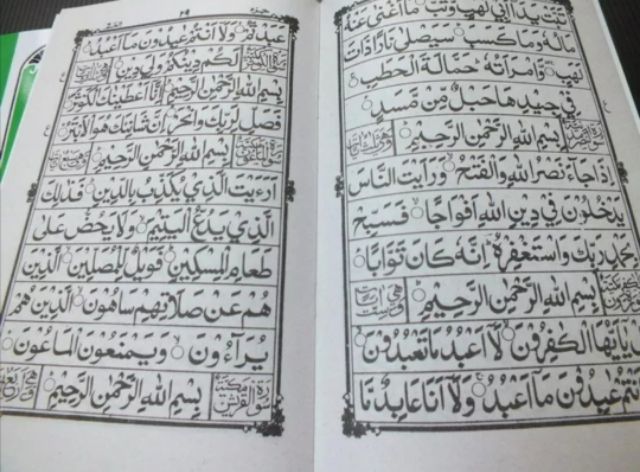 تَبَّتْ يَدَآ اَبِيْ لَهَبٍ وَّتَبَّ ۝ مَآ اَغْنٰى عَنْهُ
مَالُهٗ وَمَا كَسَبَ ۝ سَيَصْلٰى نَارًا ذَاتَ
لَهَبٍ ۝ وَّامْرَاَتُهٗ حَمَّالَةَ الْحَطَبِ ۝
فِيْ جِيْدِهَا حَبْلٌ مِّنْ مَّسَدٍ ۝
بِسْمِ اللهِ الرَّحْمٰنِ الرَّحِيْمِ
اِذَا جَآءَ نَصْرُ اللهِ وَالْفَتْحُ ۝ وَرَاَيْتَ النَّاسَ
يَدْخُلُوْنَ فِيْ دِيْنِ اللهِ اَفْوَاجًا ۝ فَسَبِّحْ
بِحَمْدِ رَبِّكَ وَاسْتَغْفِرْهُ اِنَّهٗ كَانَ تَوَّابًا ۝
بِسْمِ اللهِ الرَّحْمٰنِ الرَّحِيْمِ
يٰٓاَيُّهَا الْكٰفِرُوْنَ ۝ لَآ اَعْبُدُ مَا تَعْبُدُوْنَ ۝
عٰبِدُوْنَ مَآ اَعْبُدُ ۝ وَلَآ اَنَا عَابِدٌ مَّا
عَبَدْتُّمْ ۝ وَلَآ اَنْتُمْ عٰبِدُوْنَ مَآ اَعْبُدُ ۝
لَكُمْ دِيْنُكُمْ وَلِيَ دِيْنِ ۝
بِسْمِ اللهِ الرَّحْمٰنِ الرَّحِيْمِ اِنَّآ اَعْطَيْنٰكَ الْكَوْثَرَ ۝
فَصَلِّ لِرَبِّكَ وَانْحَرْ ۝ اِنَّ شَانِئَكَ هُوَ الْاَبْتَرُ ۝
بِسْمِ اللهِ الرَّحْمٰنِ الرَّحِيْمِ
اَرَءَيْتَ الَّذِيْ يُكَذِّبُ بِالدِّيْنِ ۝ فَذٰلِكَ
الَّذِيْ يَدُعُّ الْيَتِيْمَ ۝ وَلَا يَحُضُّ عَلٰى
طَعَامِ الْمِسْكِيْنِ ۝ فَوَيْلٌ لِّلْمُصَلِّيْنَ ۝ الَّذِيْنَ
هُمْ عَنْ صَلَاتِهِمْ سَاهُوْنَ ۝ الَّذِيْنَ هُمْ
يُرَآءُوْنَ ۝ وَيَمْنَعُوْنَ الْمَاعُوْنَ ۝
بِسْمِ اللهِ الرَّحْمٰنِ الرَّحِيْمِ